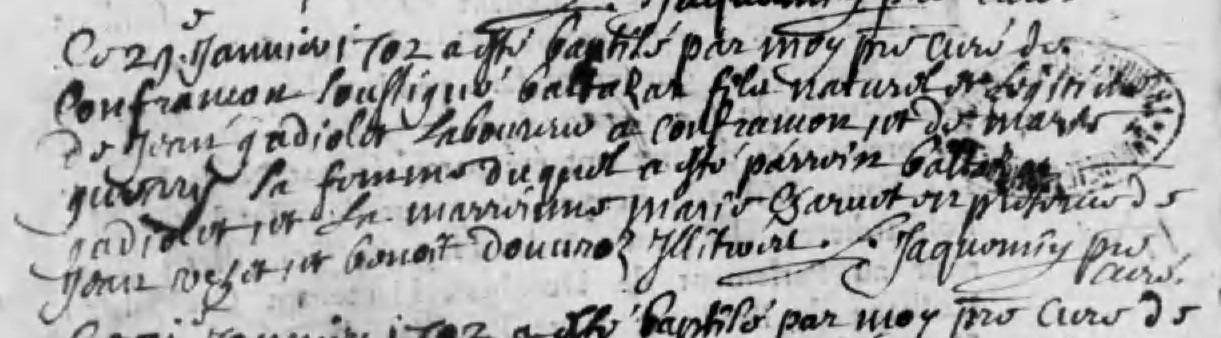 Jaquemin
Ce 29e Janvier 1702 a esté baptisé par moy pre curé de
Confrancon soussigné baltazar fils naturel et légitime
de Jean gadiolet laboureur a confrancon, et de marie
la femme duquel a esté parroin baltazar
gadiolet, et la marroinne marie en présence de
Jean et benoit illitéré. Jaquemin pre
curé.
Janvier 1702 a esté baptisé par moy pre curé de